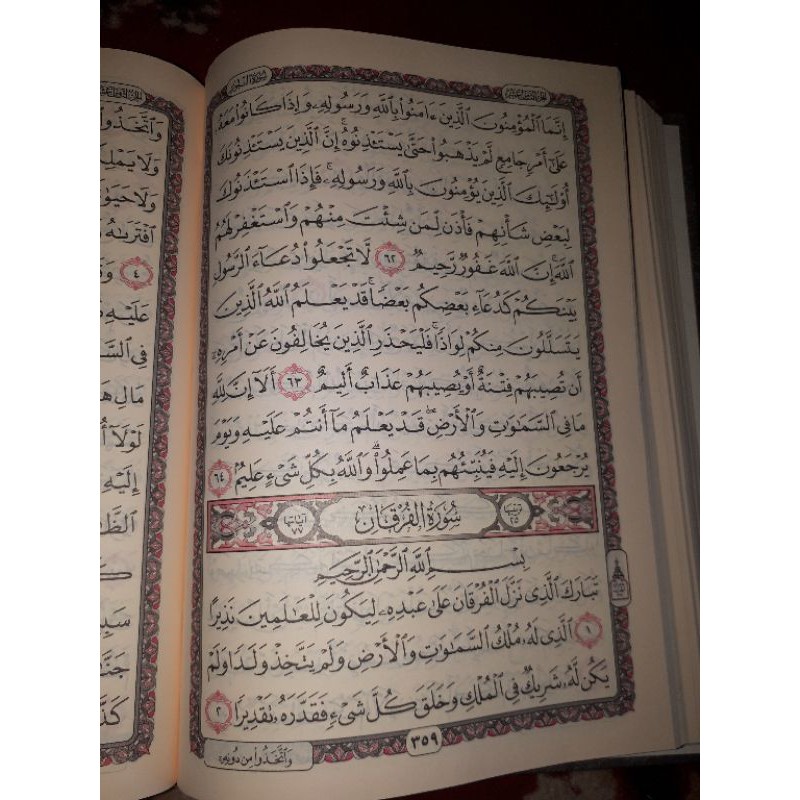 سورة النور
الجزء الثامن عشر
إِنَّمَا ٱلْمُؤْمِنُونَ ٱلَّذِينَ ءَامَنُوا۟ بِٱللَّهِ وَرَسُولِهِۦ وَإِذَا كَانُوا۟ مَعَهُۥ
عَلَىٰٓ أَمْرٍ جَامِعٍ لَّمْ يَذْهَبُوا۟ حَتَّىٰ يَسْتَـْٔذِنُوهُ ۚ إِنَّ ٱلَّذِينَ يَسْتَـْٔذِنُونَكَ
أُو۟لَٰٓئِكَ ٱلَّذِينَ يُؤْمِنُونَ بِٱللَّهِ وَرَسُولِهِۦ ۚ فَإِذَا ٱسْتَـْٔذَنُوكَ
لِبَعْضِ شَأْنِهِمْ فَأْذَن لِّمَن شِئْتَ مِنْهُمْ وَٱسْتَغْفِرْ لَهُمُ
ٱللَّهَ ۚ إِنَّ ٱللَّهَ غَفُورٌ رَّحِيمٌ ٦٢ لَّا تَجْعَلُوا۟ دُعَآءَ ٱلرَّسُولِ
بَيْنَكُمْ كَدُعَآءِ بَعْضِكُم بَعْضًا ۚ قَدْ يَعْلَمُ ٱللَّهُ ٱلَّذِينَ
يَتَسَلَّلُونَ مِنكُمْ لِوَاذًا ۚ فَلْيَحْذَرِ ٱلَّذِينَ يُخَالِفُونَ عَنْ أَمْرِهِۦٓ
أَن تُصِيبَهُمْ فِتْنَةٌ أَوْ يُصِيبَهُمْ عَذَابٌ أَلِيمٌ ٦٣ أَلَآ إِنَّ لِلَّهِ
مَا فِى ٱلسَّمَٰوَٰتِ وَٱلْأَرْضِ ۖ قَدْ يَعْلَمُ مَآ أَنتُمْ عَلَيْهِ وَيَوْمَ
يُرْجَعُونَ إِلَيْهِ فَيُنَبِّئُهُم بِمَا عَمِلُوا۟ ۗ وَٱللَّهُ بِكُلِّ شَىْءٍ عَلِيمٌۢ ٦٤
ترتيبها ٢٥ سُورَةُ الفُرْقَان آياتها ٧٧
بِسْمِ ٱللَّهِ ٱلرَّحْمَٰنِ ٱلرَّحِيمِ
تَبَارَكَ ٱلَّذِى نَزَّلَ ٱلْفُرْقَانَ عَلَىٰ عَبْدِهِۦ لِيَكُونَ لِلْعَٰلَمِينَ نَذِيرًا
١ ٱلَّذِى لَهُۥ مُلْكُ ٱلسَّمَٰوَٰتِ وَٱلْأَرْضِ وَلَمْ يَتَّخِذْ وَلَدًا وَلَمْ
يَكُن لَّهُۥ شَرِيكٌ فِى ٱلْمُلْكِ وَخَلَقَ كُلَّ شَىْءٍ فَقَدَّرَهُۥ تَقْدِيرًا ٢
٣٥٩
وَٱتَّخَذُوا۟ مِن دُونِهِۦٓ
وَٱتَّخَذُوا۟
وَلَا يَمْلِ
وَلَا حَيَوٰ
ٱفْتَرَىٰهُ
٤
عَلَيْهِ
فِى ٱلسَّ
مَالِ هَ
لَوْلَآ أُ
إِلَيْهِ
ٱلظَّ
سَبِ
جَنَّ
كَذَّ